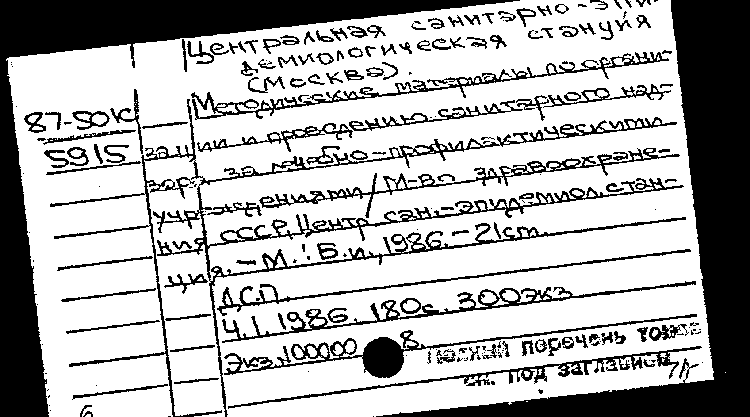 Центральная санитарно-эпи-
демиологическая станция
(Москва).
87-50К
5915
Методические материалы по органи-
зации и проведению санитарного над-
зора за лечебно-профилактическими
учреждениями / М-во здравоохране-
ния СССР, Центр. сан.-эпидемиол. стан-
ция. - М. : Б.и., 1986. - 21см.
Д.С.П.
Ч.1. 1986. 180с. 300экз
Экз. 100000 8.
Полный перечень томов
см. под заглавием
6